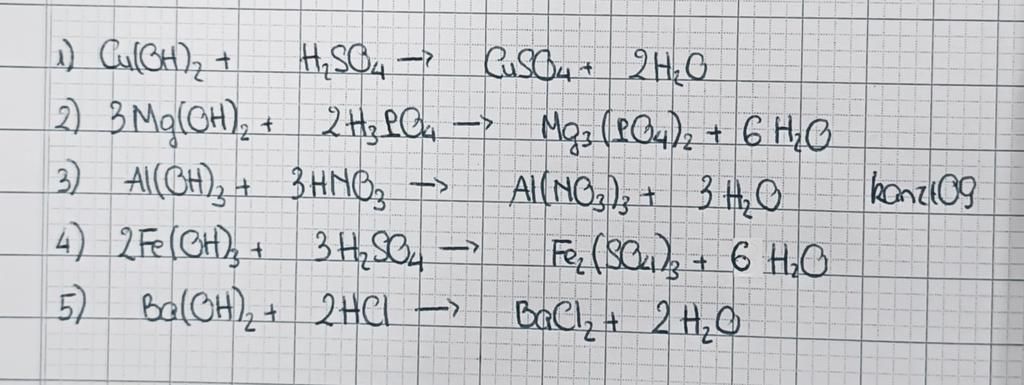 1) Cu(OH)₂ + H₂SO₄ → CuSO₄ + 2H₂O
2) 3Mg(OH)₂ + 2H₃PO₄ → Mg₃(PO₄)₂ + 6H₂O
3) Al(OH)₃ + 3HNO₃ → Al(NO₃)₃ + 3H₂O kanzi09
4) 2Fe(OH)₃ + 3H₂SO₄ → Fe₂(SO₄)₃ + 6H₂O
5) Ba(OH)₂ + 2HCl → BaCl₂ + 2H₂O